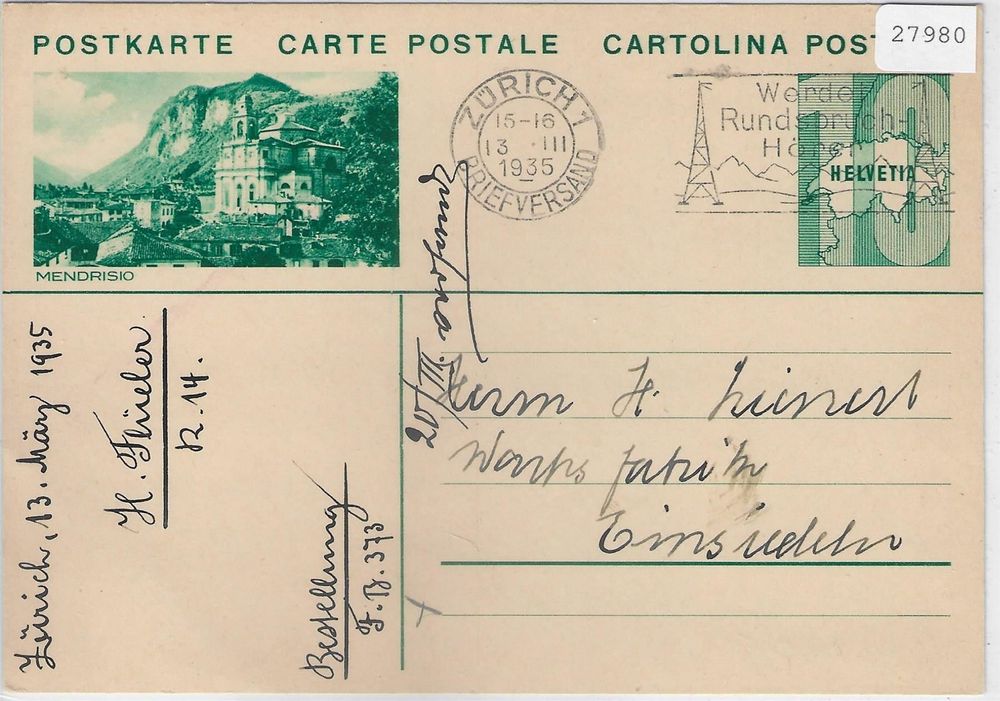 POSTKARTE CARTE POSTALE CARTOLINA POST
27980
MENDRISIO
ZÜRICH 1
15-16
13. III
1935
BRIEFVERSAND
Werdet
Rundspruch-
Hörer
HELVETIA
10
Zürich, 13. März 1935
R. 14.
Bestellung
F. B. 373
Herrn H. Lienert
Wachsfabrik
Einsiedeln